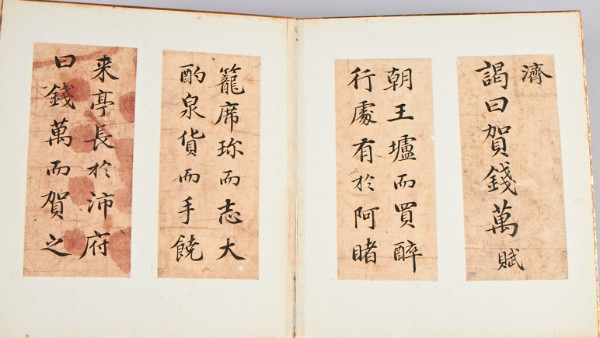 濟
謁曰賀錢萬賦
朝王壚而買醉
行處有於阿睹
籠席珎而志大
酌泉貨而手饒
来亭長於沛府
曰錢萬而賀之